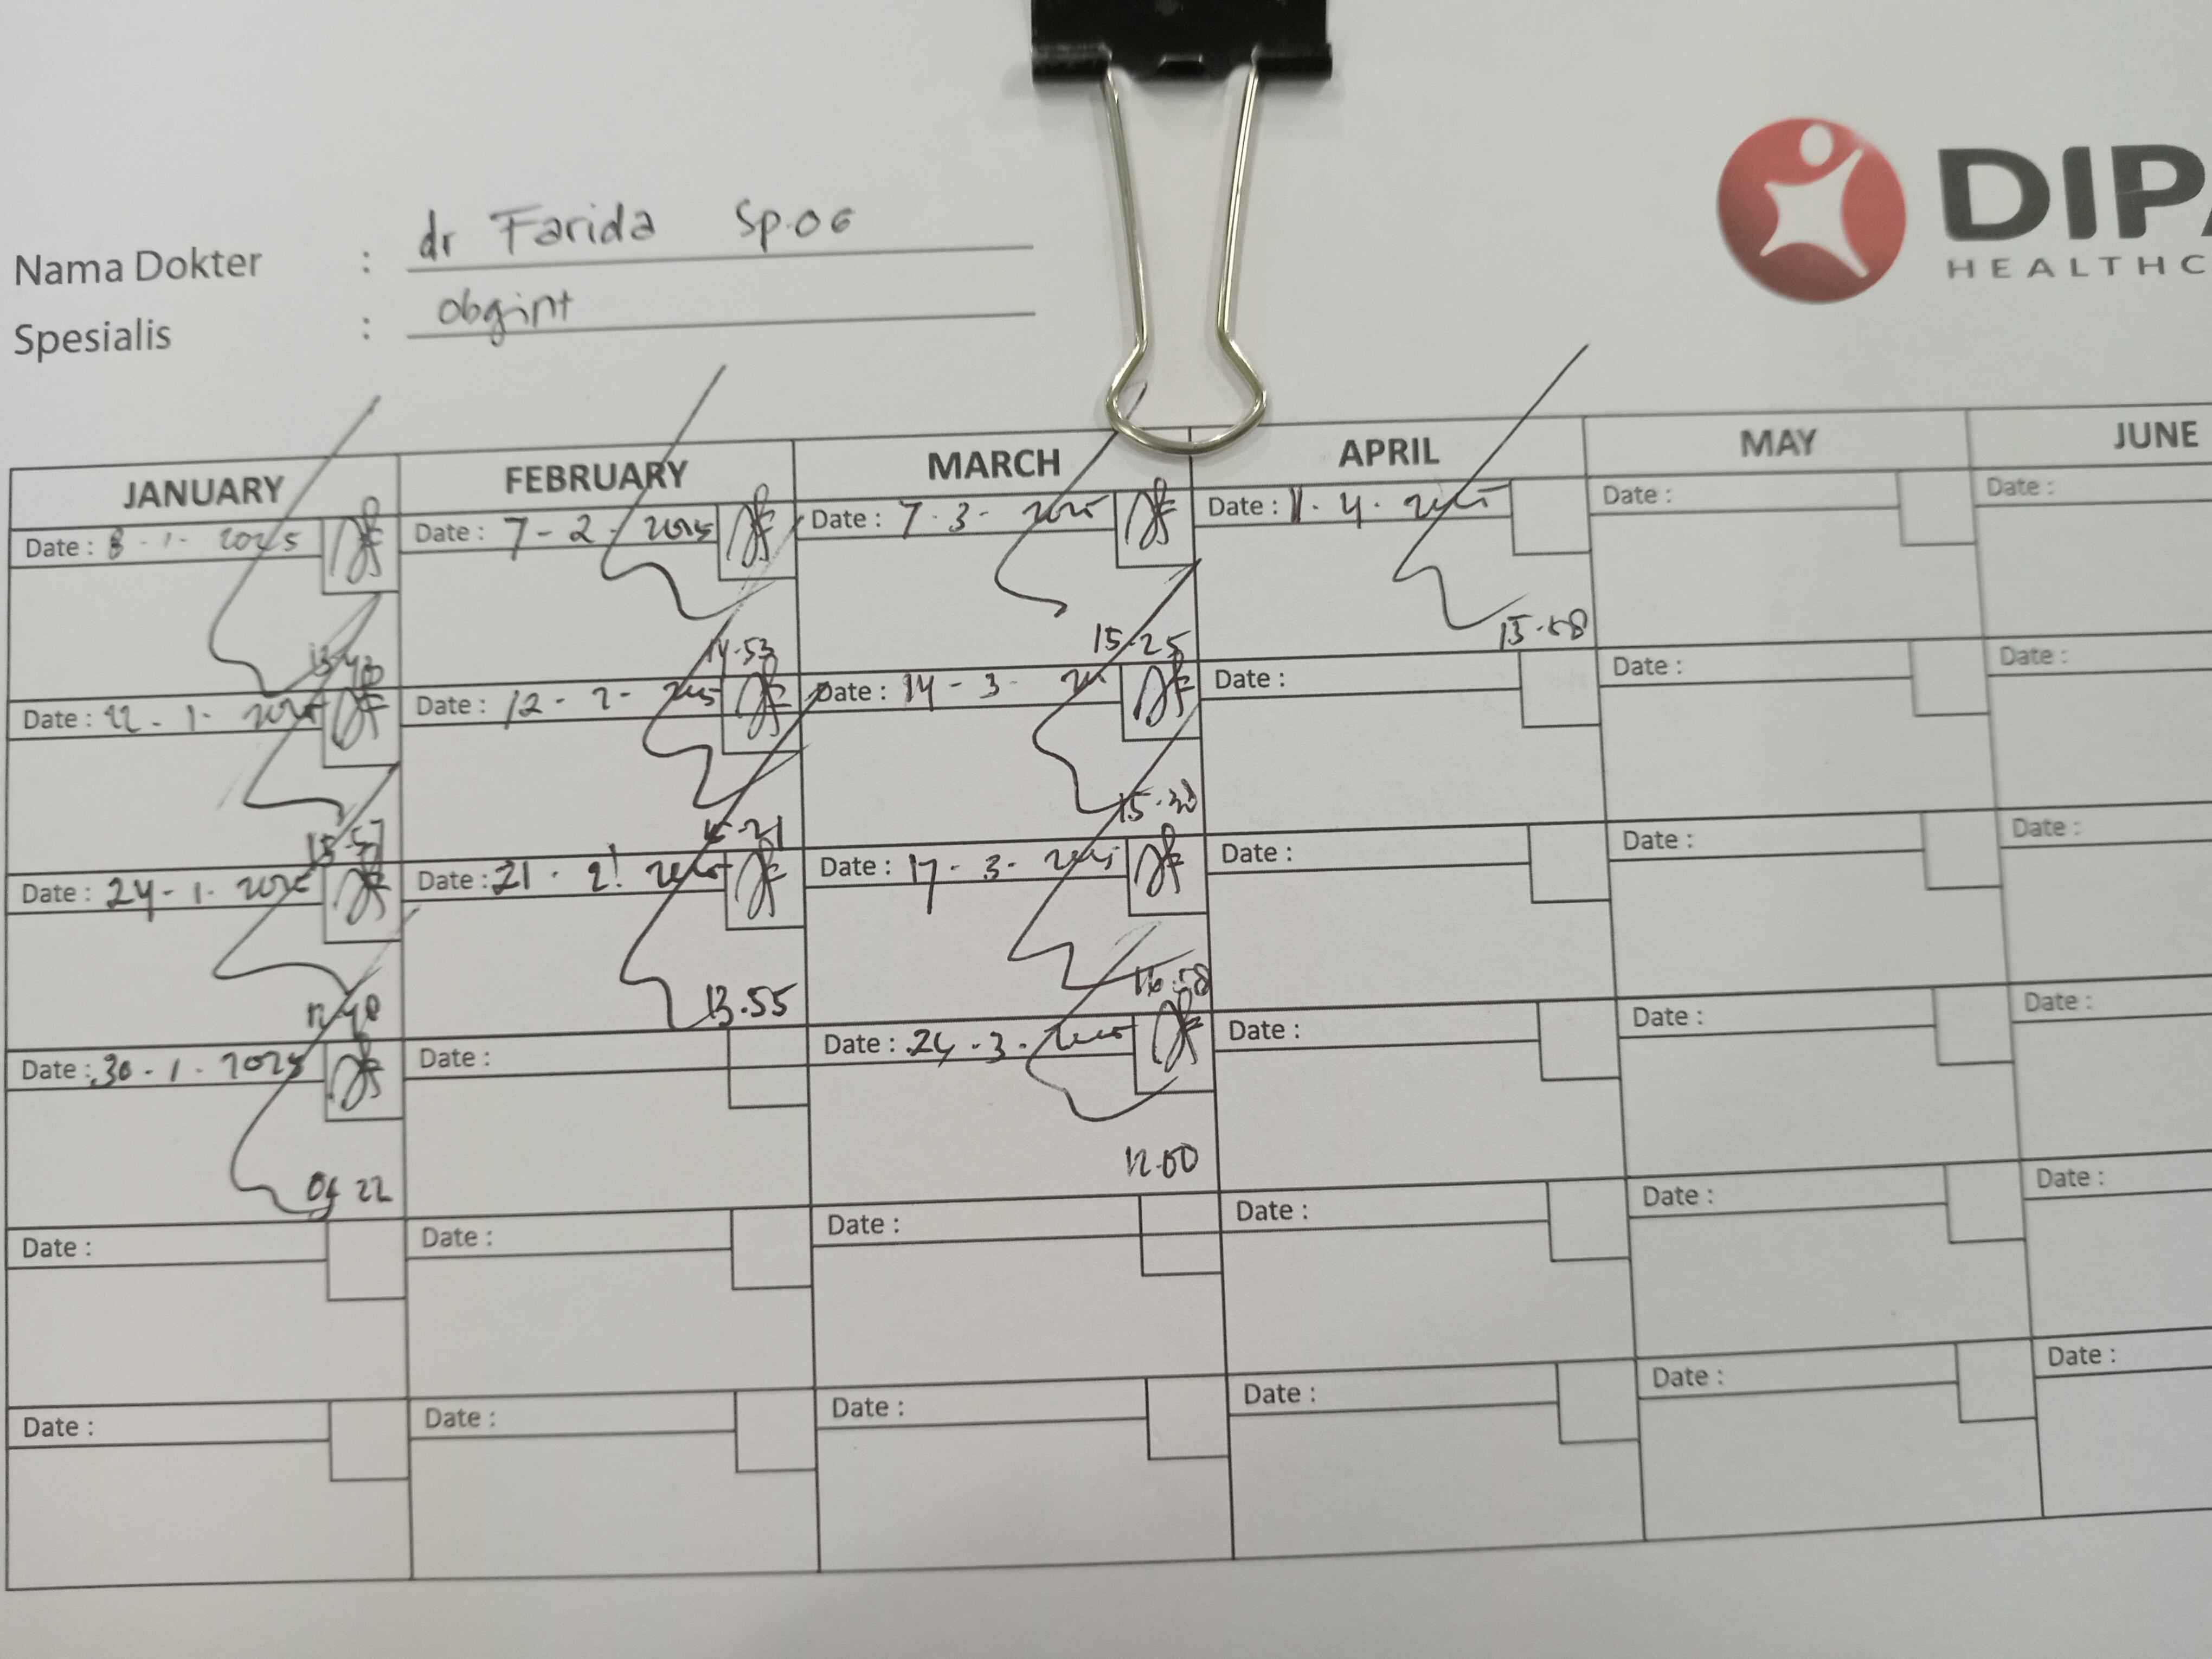 DIPA
HEALTHC
Nama Dokter : dr Farida Sp.OG
Spesialis : obgint
JANUARY FEBRUARY MARCH APRIL MAY JUNE
Date : 8 - 1 - 2025 Date : 7 - 2 - 2025 Date : 7 - 3 - 2025 Date : 11 - 4 - 2025 Date : Date :
14.53 15.25 15.58
Date : 22 - 1 - 2025 Date : 12 - 2 - 2025 Date : 14 - 3 - Date : Date : Date :
15.57 15.21 15.30
Date : 24 - 1 - 2025 Date : 21 - 2 - 2025 Date : 17 - 3 - 2025 Date : Date : Date :
13.55 16.58
Date : 30 - 1 - 2025 Date : Date : 24 - 3 - 2025 Date : Date : Date :
22 12.00
Date : Date : Date : Date : Date : Date :
Date : Date : Date : Date : Date : Date :